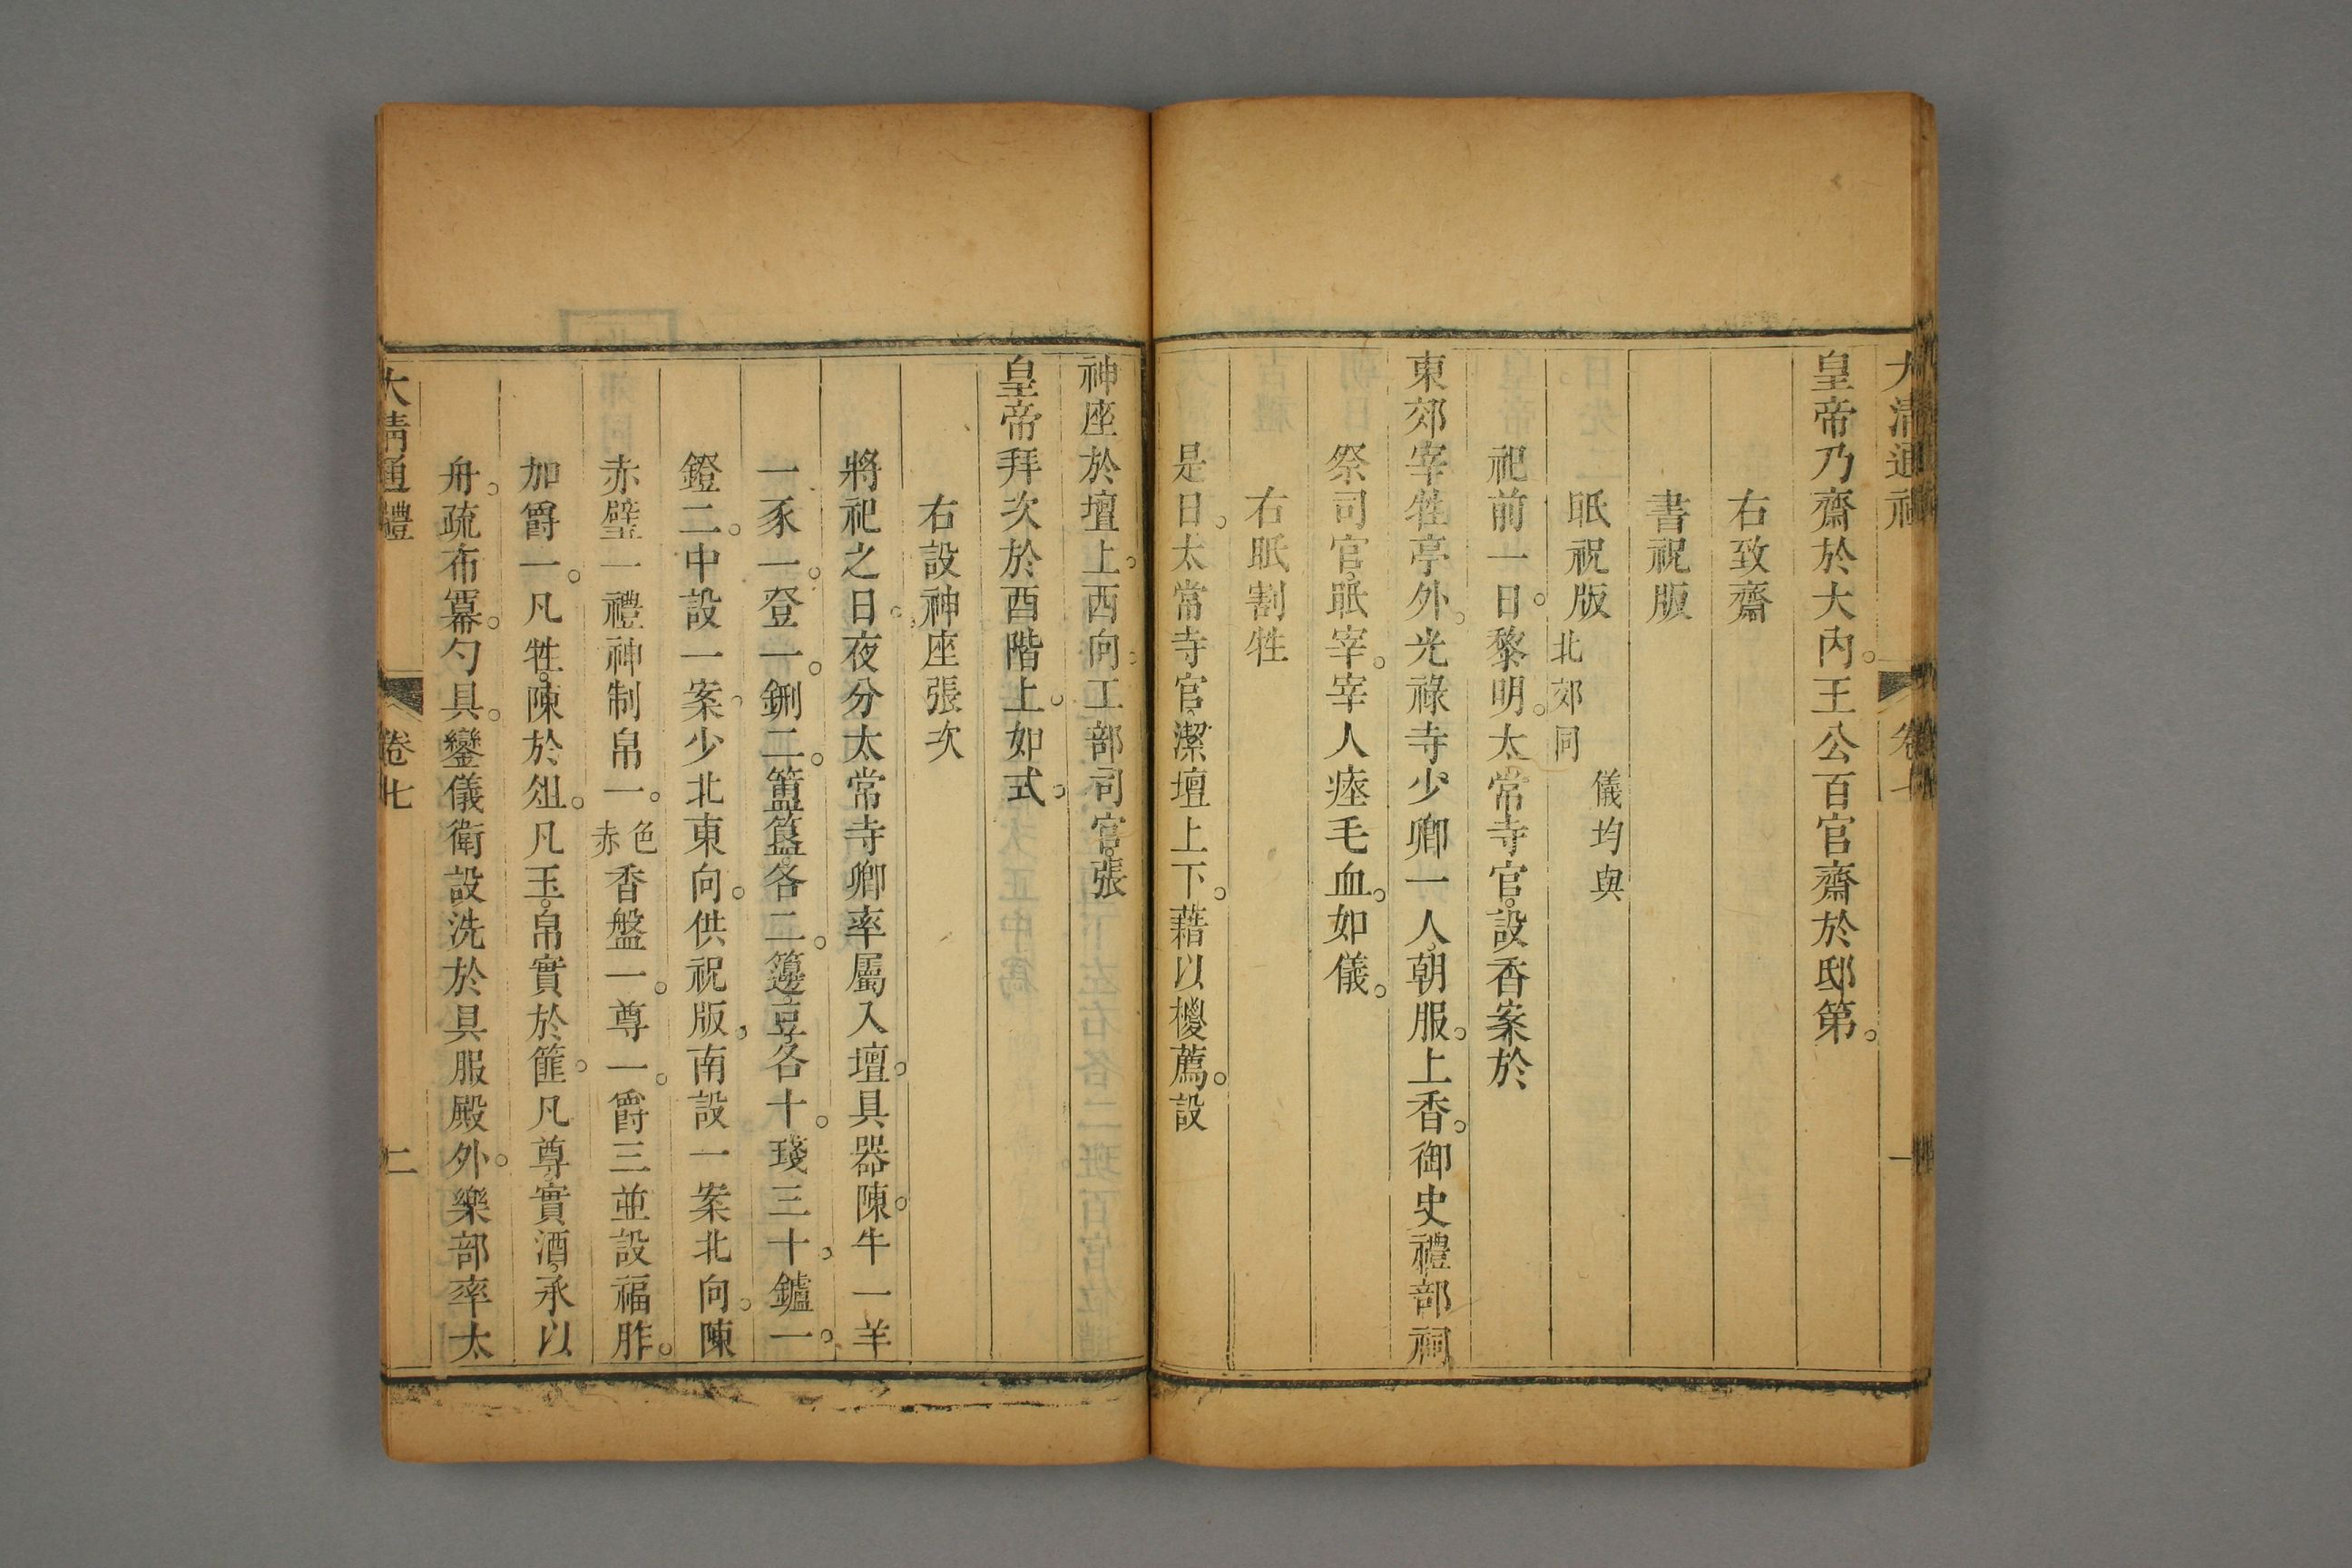 大清通禮 卷七 一
皇帝乃齋於大內。王公百官齋於邸第。
右致齋
書祝版
眡祝版 儀均與北郊同
祀前一日。黎明。太常寺官。設香案於
東郊宰牲亭外。光祿寺少卿一人。朝服。上香。御史禮部祠
祭司官。眡宰。宰人瘞毛血。如儀。
右眡割牲
是日。太常寺官。潔壇上下。藉以㮨薦。設
神座於壇上。西向。工部司官。張
皇帝拜次於酉階上。如式。
右設神座張次
將祀之日。夜分太常寺卿率屬入壇。具器。陳牛一羊
一豕一。登一。鉶二。簠簋。各二。籩豆。各十。琖三十。鑪一。
鐙二。中設一案。少北東向。供祝版。南設一案北向。陳
赤璧一禮神制帛一。色赤香盤一。尊一。爵三並設福胙。
加爵一。凡牲。陳於俎。凡玉。帛實於篚。凡尊。實酒。承以
舟。疏布冪。勺具。鑾儀衛設洗於具服殿外。樂部率太
大清通禮 卷七 二